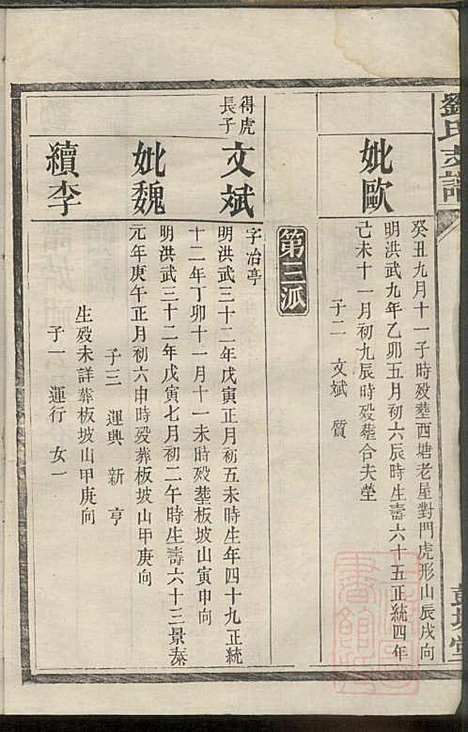 劉氏支譜
癸丑九月十一子時殁塟西塘老星對門虎形山辰戌向
妣歐
明洪武九年乙卯五月初六辰時生壽六十五正統四年
己未十一月初九辰時殁塟合夫塋
子二 文斌 質
第三派
得虎長子
文斌
字冶亭
明洪武三十二年戊寅正月初五未時生年四十九正統
十二年丁卯十一月十一未時殁塟板坡山寅申向
妣魏
明洪武三十二年戊寅七月初二午時生壽六十三景泰
元年庚午正月初六申時殁葬板坡山甲庚向
子三 運興 新 亨
續李
生殁未詳葬板坡山甲庚向
子一 運行 女一